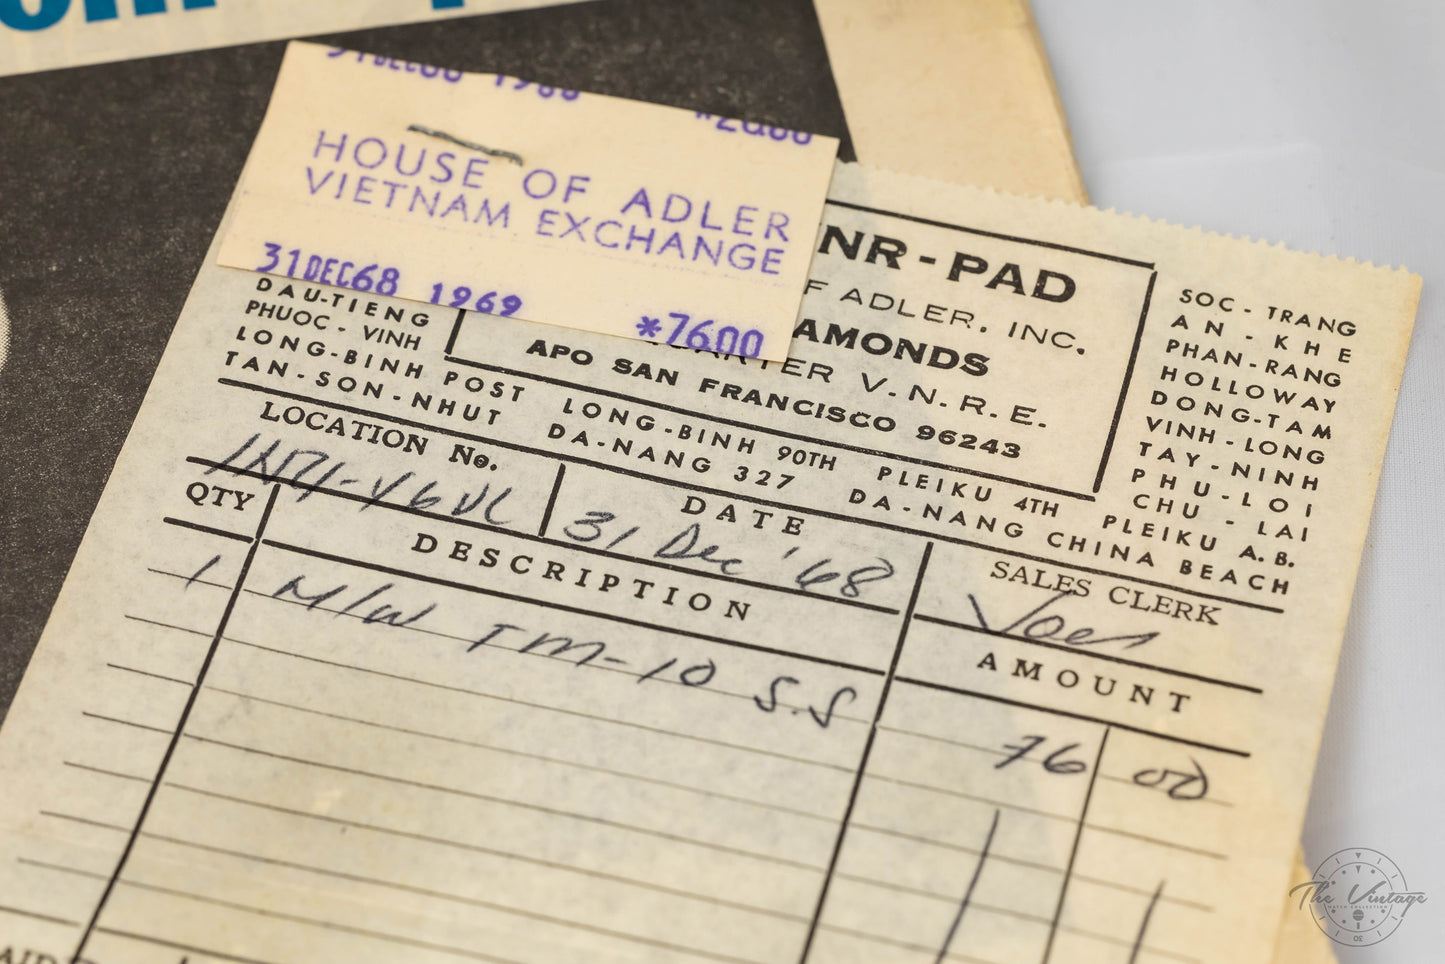 31DEC68 1968
HOUSE OF ADLER
VIETNAM EXCHANGE
31DEC68 1969
*7600
NR-PAD
F ADLER, INC.
AMONDS
ARTER V.N.R.E.
APO SAN FRANCISCO 96243
DAU-TIENG
PHUOC - VINH
LONG-BINH POST LONG-BINH 90TH PLEIKU 4TH PLEIKU A.B.
TAN-SON-NHUT DA-NANG 327 DA-NANG CHINA BEACH
SOC - TRANG
AN - KHE
PHAN-RANG
HOLLOWAY
DONG-TAM
VINH-LONG
TAY-NINH
PHU-LOI
CHU - LAI
LOCATION No.
DATE
31 Dec '68
SALES CLERK
QTY
DESCRIPTION
AMOUNT
1 M/W TM-10 S.S 76 00
The Vintage
WATCH COLLECTIVE